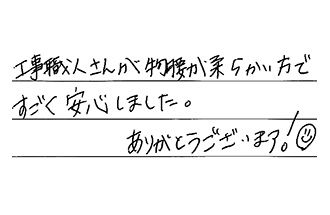 工事職人さんが物腰が柔らかい方で
すごく安心しました。
ありがとうございます!